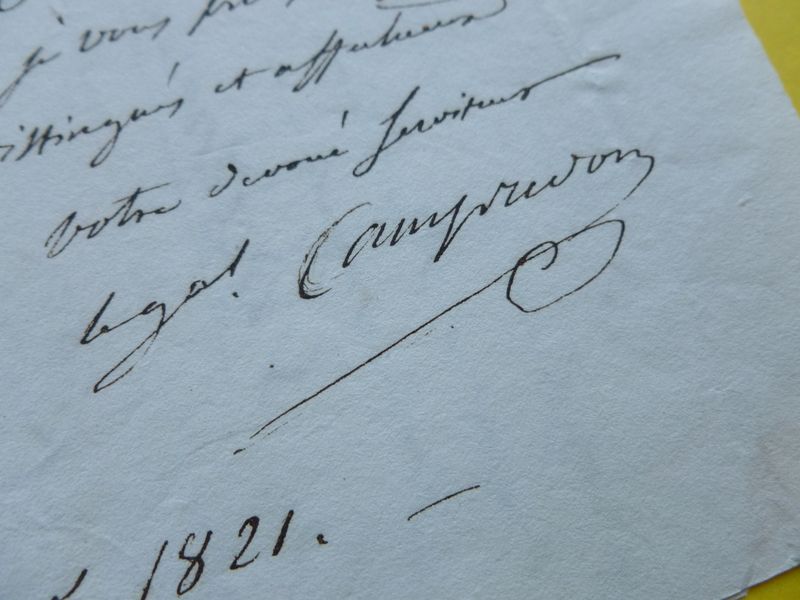 je vous prie
distingués et affectueux
votre devoué serviteur
le gal. Campredon
1821.